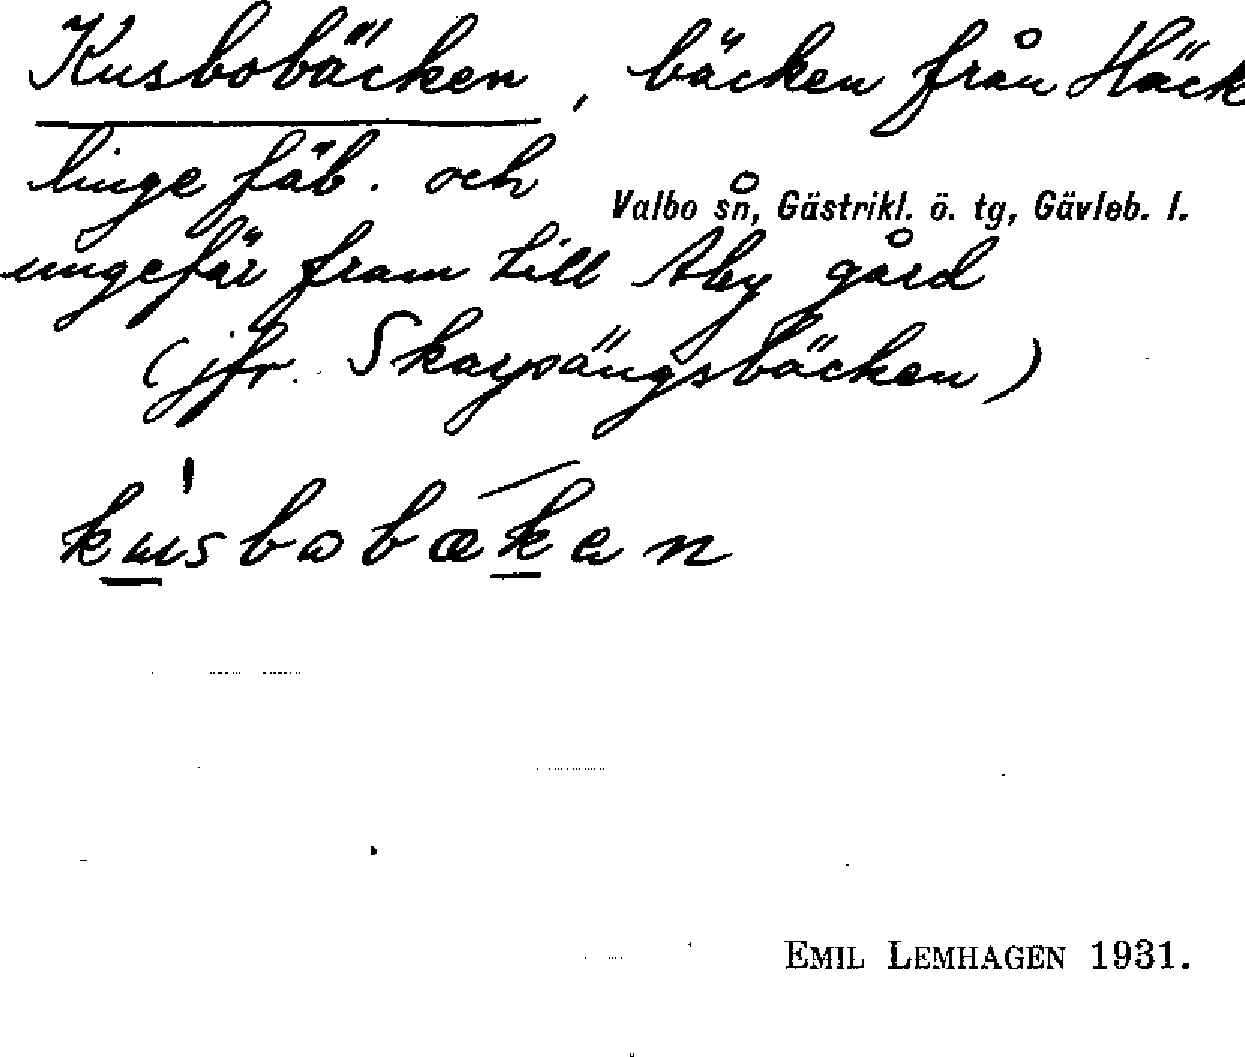 Kusbobäcken, bäcken från Häck
linge fäb. och
Valbo sn, Gästrikl. ö. tg, Gävleb. l.
ungefär fram till Åby gård
(jfr. Skarpängsbäcken)
kusbobæken
EMIL LEMHAGEN 1931.